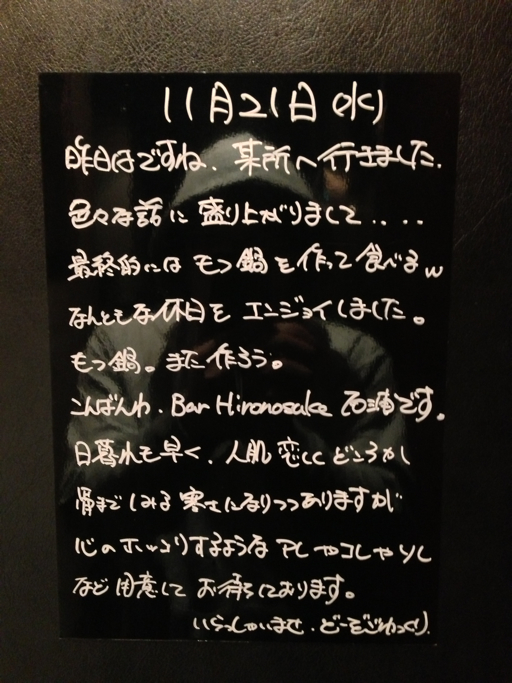 11月21日(水)
昨日はですね、某所へ行きました。
色々な話に盛り上がりまして‥‥
最終的には もつ鍋を作って食べるw
なんともな休日を エンジョイしました。
もつ鍋。また作ろう。
こんばんわ、Bar Hironosake 石浦です。
日暮れも早く、人肌恋しく どころか
骨までしみる寒さになりつつありますが
心のホッコリするような アレやコレやソレ
など用意して お待ちしております。
いらっしゃいませ、どーぞごゆっくり。